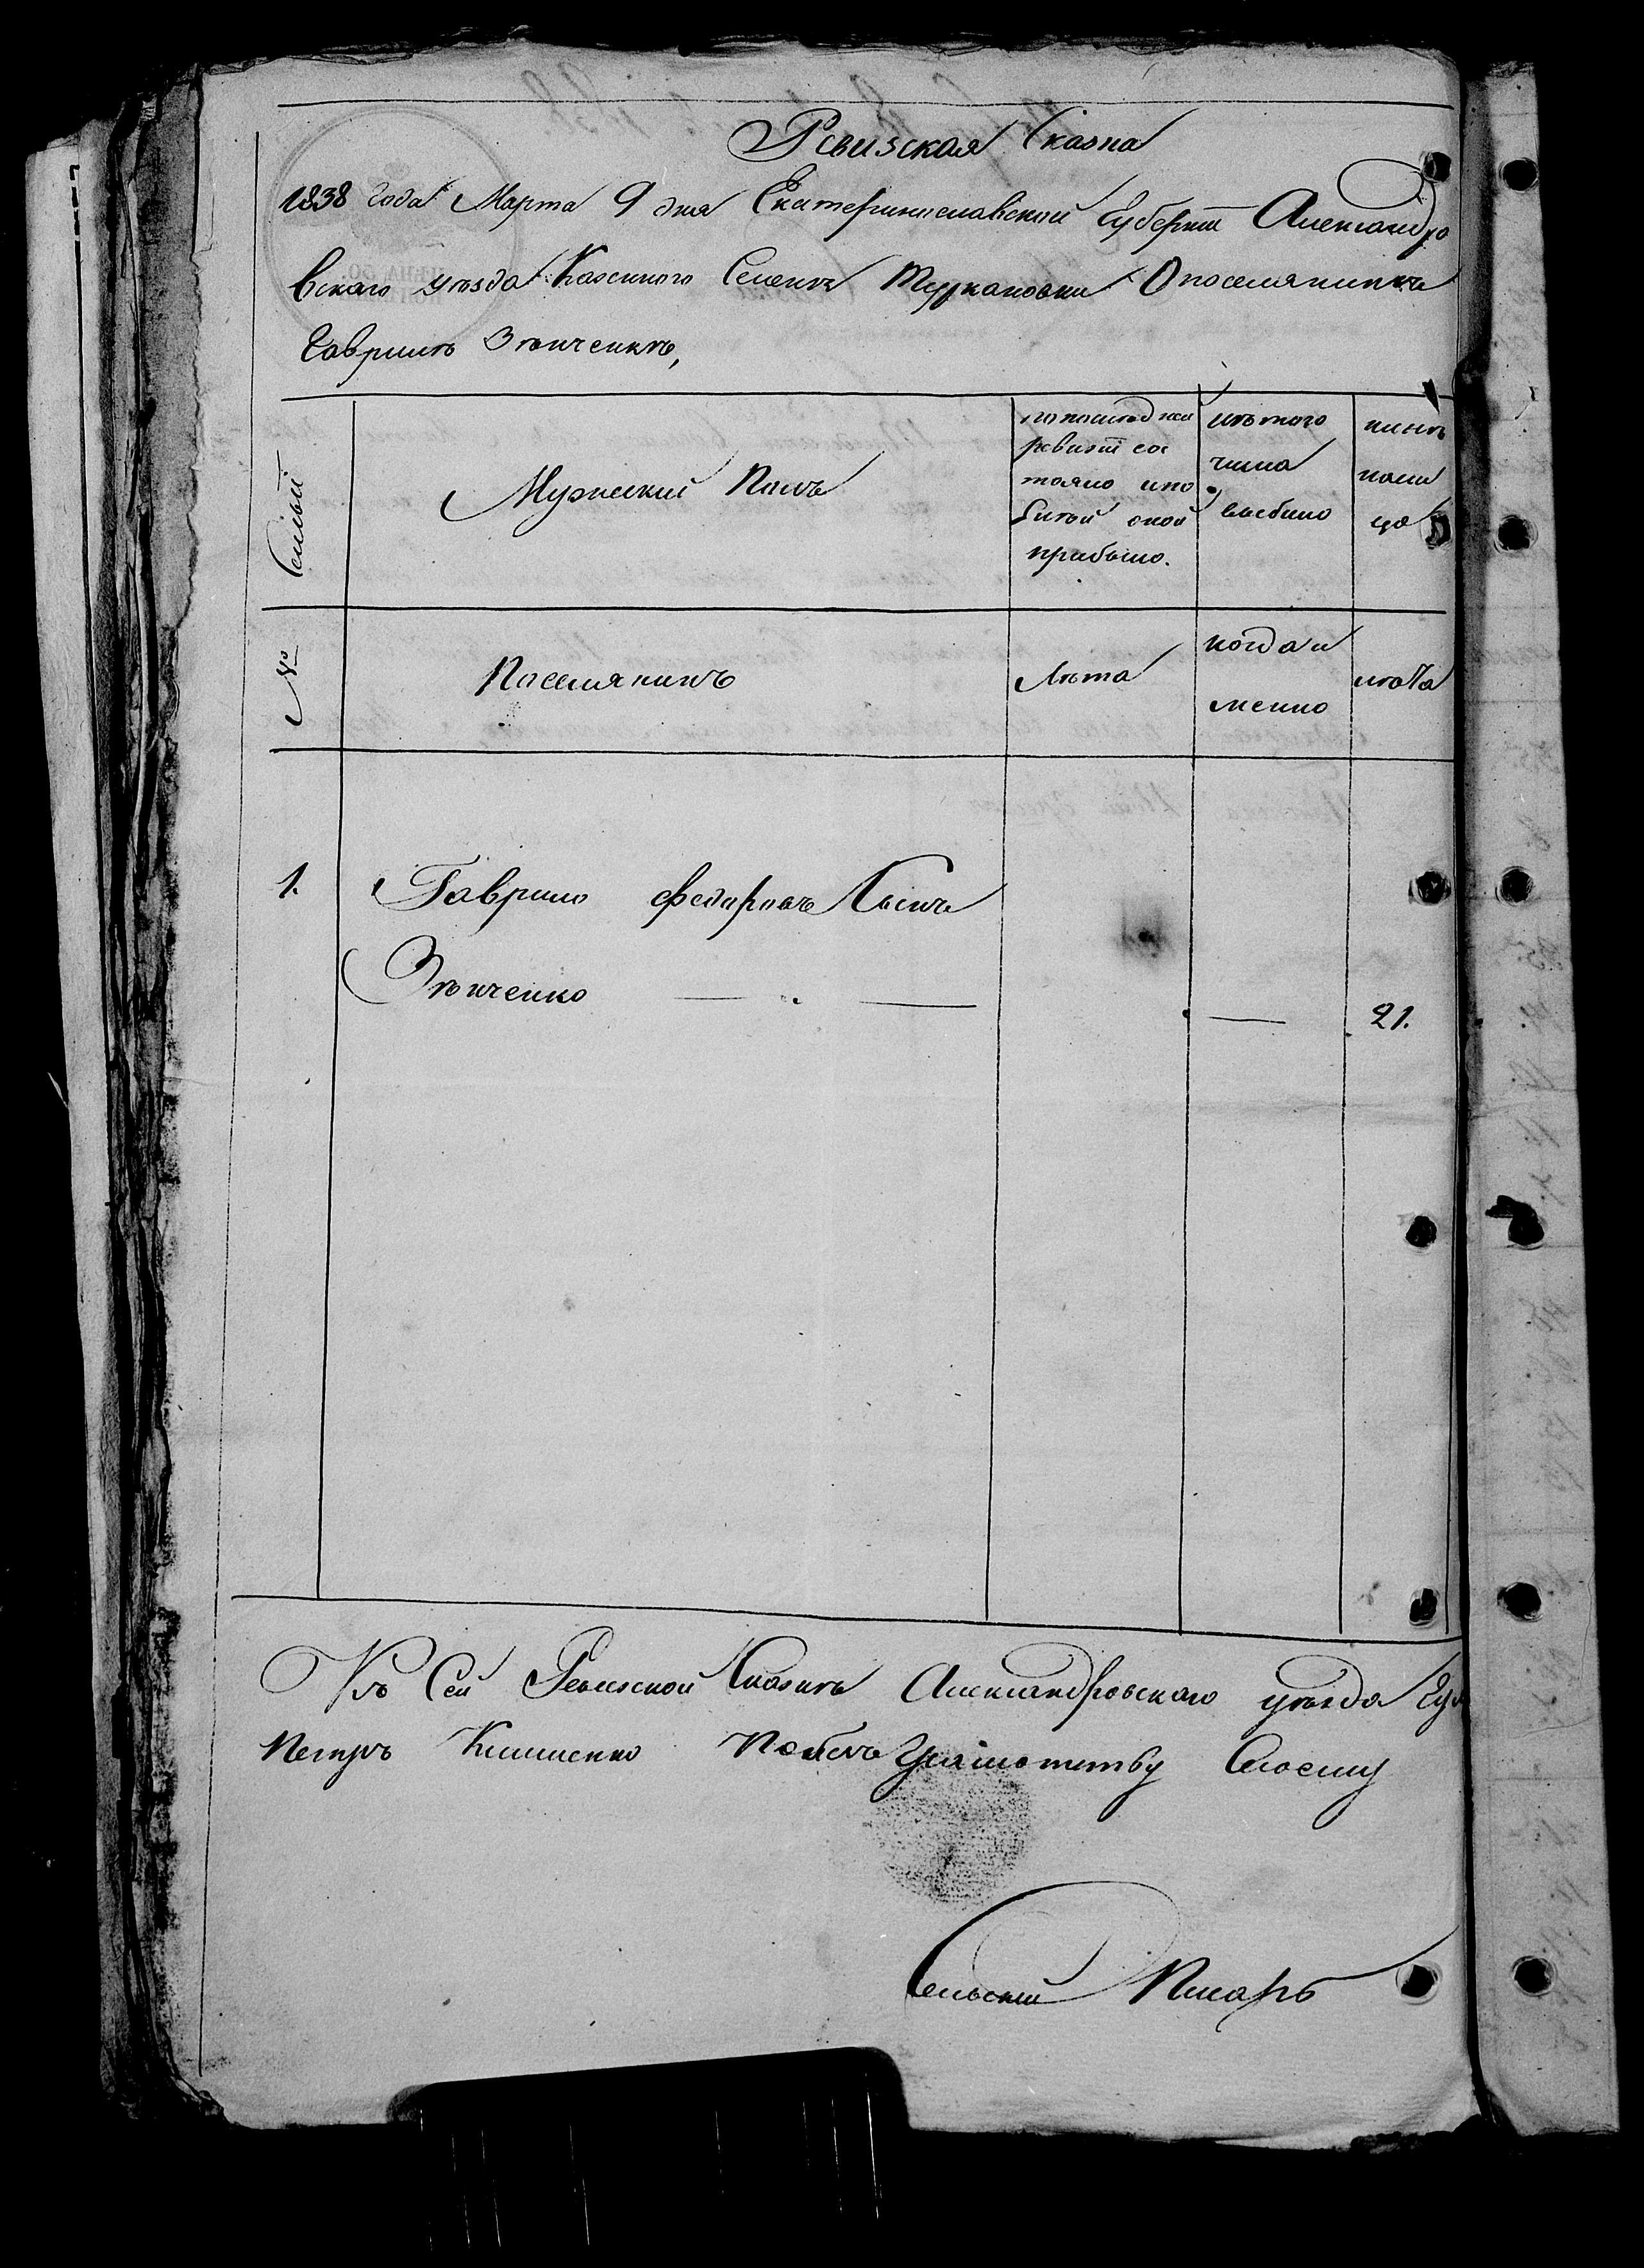 Ревизская Сказка
1838 года Марта 9 дня Екатеринославской Губернии Александро
вскаго уезда Казенного Селения Туркановки О поселянине
Гавриле Зѣнченкѣ,
Семьи
Мужеский Полъ
по последней
ревизии сос
тояло и по
сле той оной
прибыло.
изъ того
числа
выбыло
ныне
на ли
цо
№
Поселянинъ
Лѣта
когда и
менно
Лѣта
1.
Гаврило Федоровъ Сынъ
Зѣнченко
21.
Къ Сей Ревизской Сказкѣ Александровскаго уѣзда
Петръ Клименко
Сельский Писарь